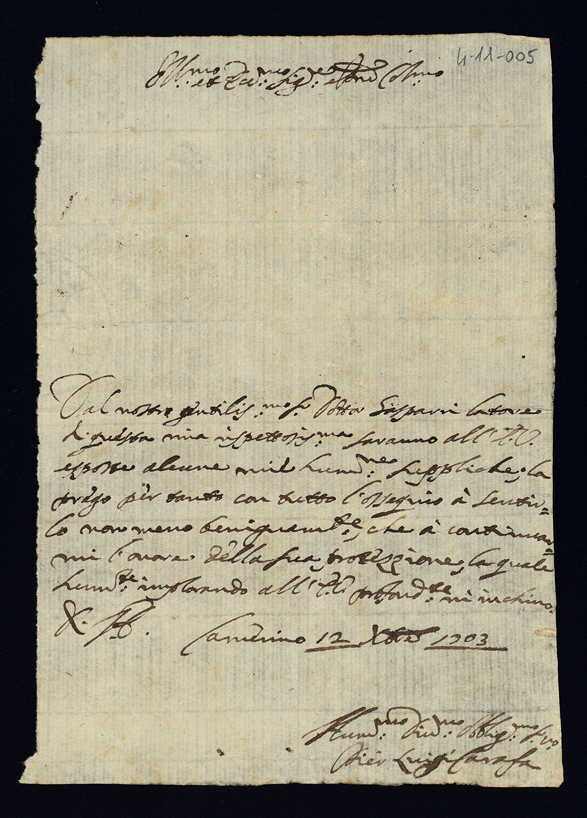 4-11-005
Ill.mo et Ecc.mo Sig.re e Pne Col.mo
Dal nostro gentilis.mo Sr Dottor Gasparri latore
di questa mia rispettosis.ma saranno all' V.E.
esposte alcune mie hum.me suppliche; la
prego per tanto con tutto l'ossequio à sentir=
lo non meno benignam.te, che à continuar=
mi l'onore della sua protezzione, la quale
hum.te implorando all' V.E. profond.te m'inchino.
Camerino 12 Xbre 1703
Hum.mo Diu.mo Obblig.mo S.re
Pier Luigi Carafa